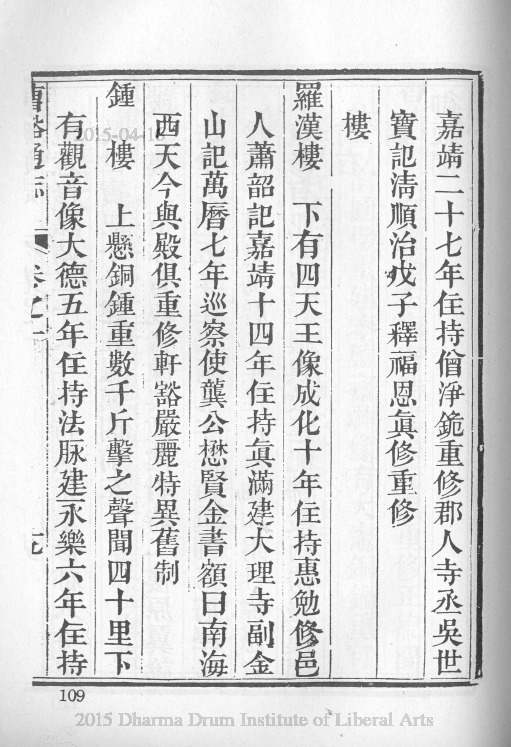 嘉靖二十七年住持僧淨𨦣重修郡人寺丞吳世
寶記淸順治戊子釋福恩眞修重修
樓
羅漢樓　下有四天王像成化十年住持惠勉修邑
人蕭韶記嘉靖十四年住持眞滿建大理寺副金
山記萬曆七年巡察使龔公懋賢金書額曰南海
西天今與殿俱重修軒豁嚴麗特異舊制
鍾　樓　上懸銅鍾重數千斤擊之聲聞四十里下
有觀音像大德五年住持法脉建永樂六年住持
曹谿通志
卷之一
109
2015-04-1
2015 Dharma Drum Institute of Liberal Arts